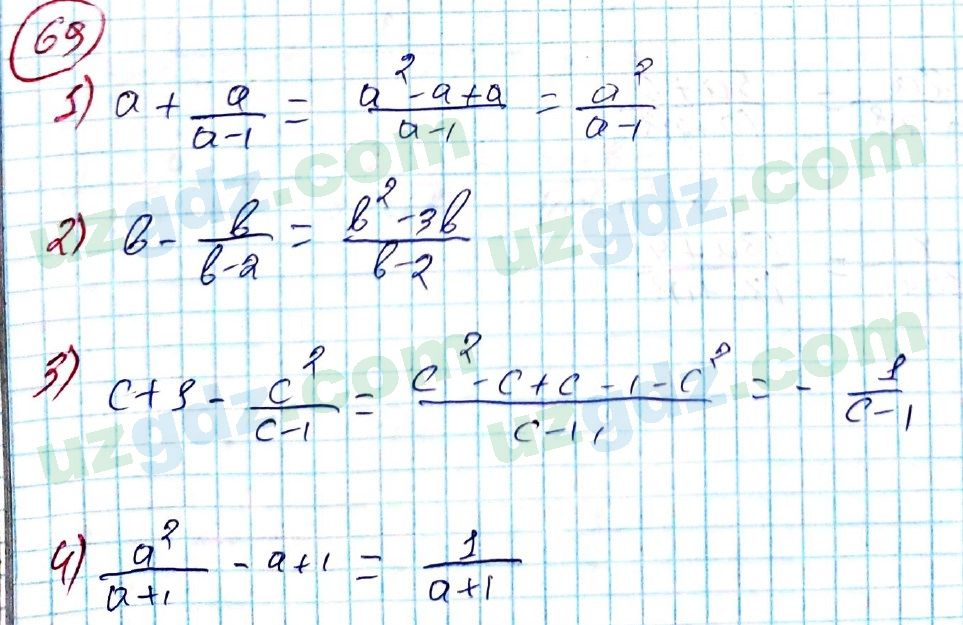 69
1) a + a/(a-1) = (a²-a+a)/(a-1) = a²/(a-1)
2) b - b/(b-2) = (b²-3b)/(b-2)
3) c+1 - c²/(c-1) = (c²-c+c-1-c²)/(c-1) = - 1/(c-1)
4) a²/(a+1) - a+1 = 1/(a+1)
uzgdz.com uzgdz.com
uzgdz.com uzgdz.com